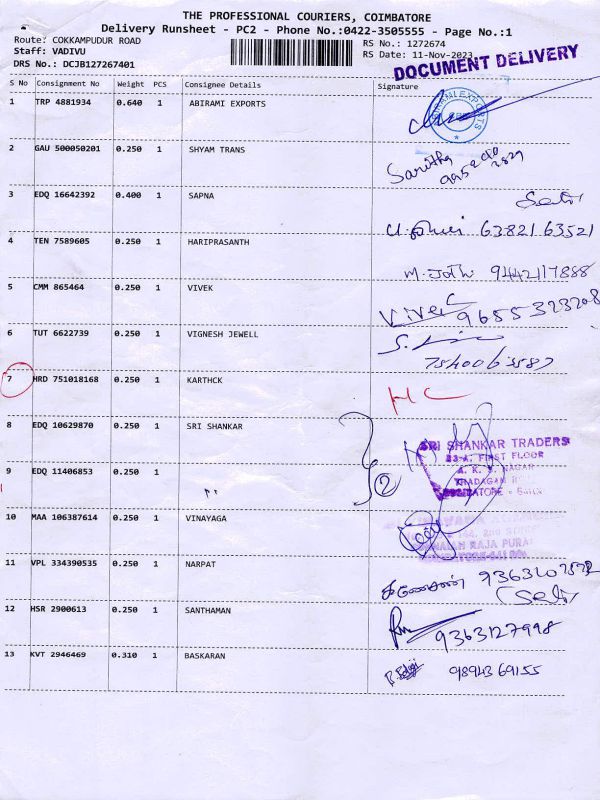 THE PROFESSIONAL COURIERS, COIMBATORE
Delivery Runsheet - PC2 - Phone No.:0422-3505555 - Page No.:1
Route: COKKAMPUDUR ROAD RS No.: 1272674
Staff: VADIVU RS Date: 11-Nov-2023
DRS No.: DCJB127267401 DOCUMENT DELIVERY
S No Consignment No Weight PCS Consignee Details Signature
1 TRP 4881934 0.640 1 ABIRAMI EXPORTS
2 GAU 500050201 0.250 1 SHYAM TRANS
Saritha
3 EDQ 16642392 0.400 1 SAPNA
63821 63521
4 TEN 7589605 0.250 1 HARIPRASANTH
M. Jothi 9442117888
5 CMM 865464 0.250 1 VIVEK
Vivek 9655323208
6 TUT 6622739 0.250 1 VIGNESH JEWELL
7 HRD 751018168 0.250 1 KARTHCK HC
8 EDQ 10629870 0.250 1 SRI SHANKAR
SRI SHANKAR TRADERS
23-A, FIRST FLOOR
A. K. S. NAGAR
THADAGAM
9 EDQ 11406853 0.250 1 " 2
10 MAA 106387614 0.250 1 VINAYAGA
11 VPL 334390535 0.250 1 NARPAT
கணேசன்
12 HSR 2900613 0.250 1 SANTHAMAN
9363127998
13 KVT 2946469 0.310 1 BASKARAN
9894369155